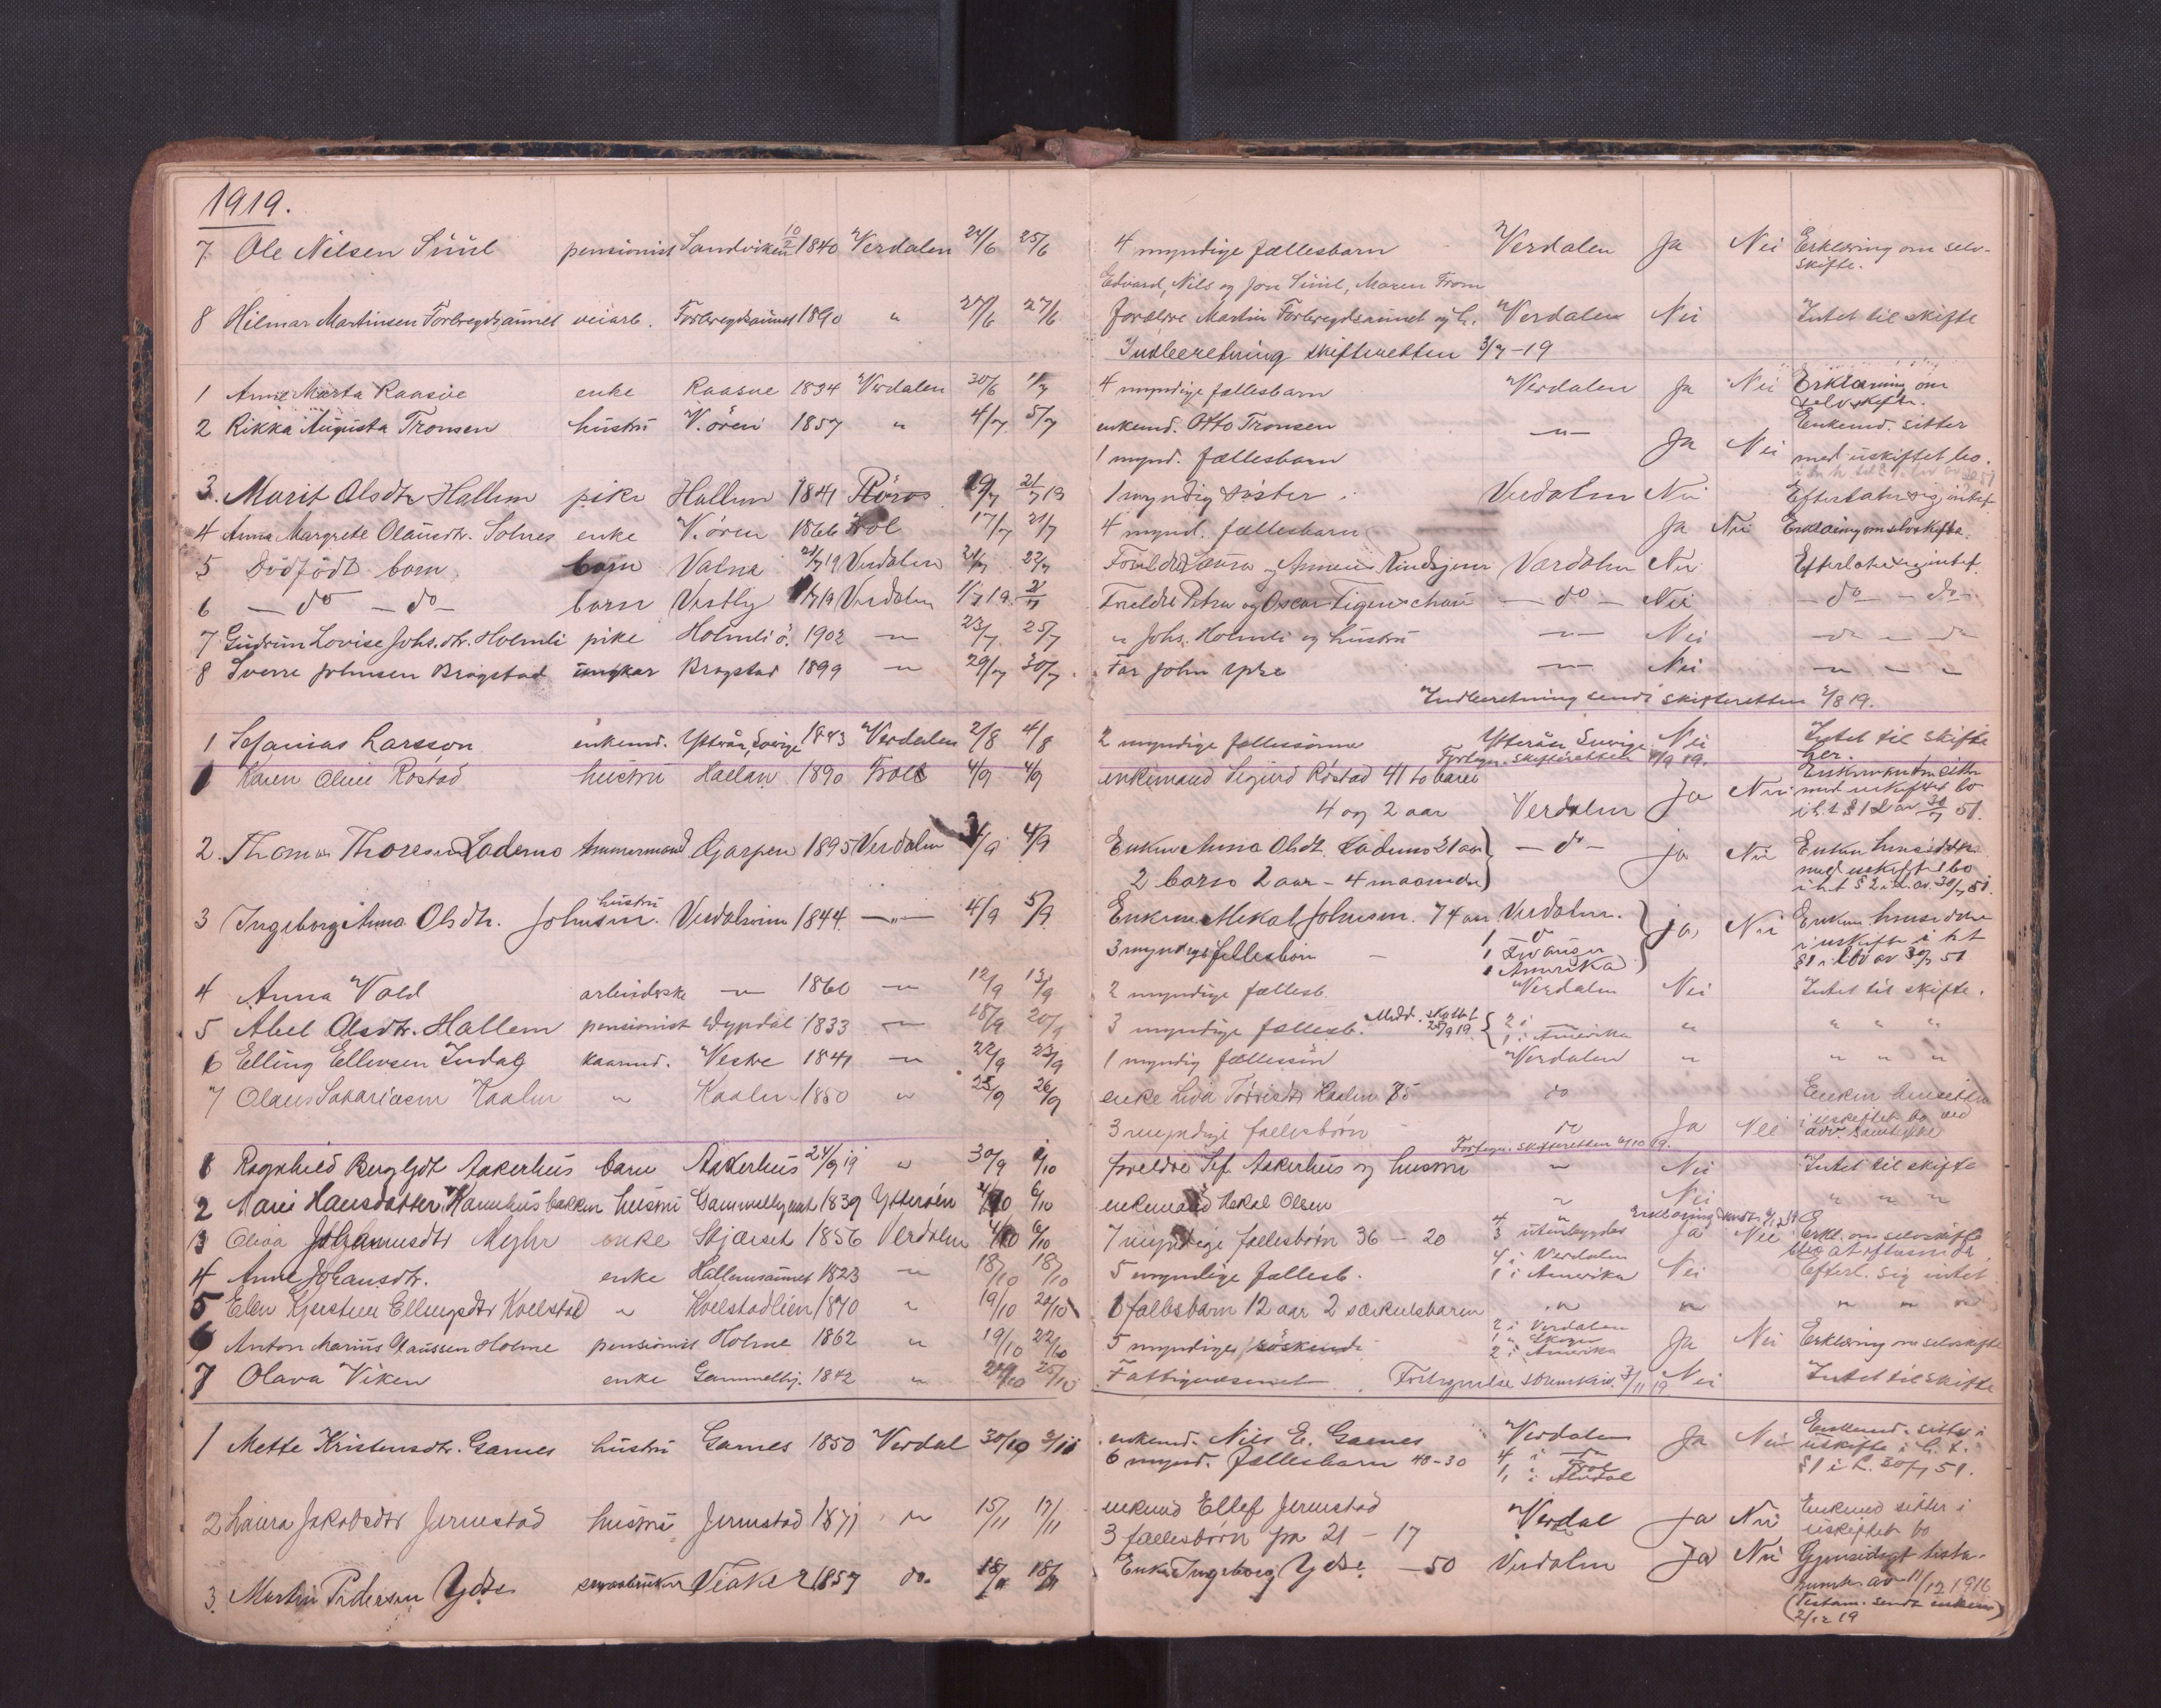 1919.
7 Ole Nilsen Süül pensionist Sandviken 10/2 1840 Verdalen 24/6 25/6 4 myndige fællesbarn Verdalen Ja Nei Erklæring om selv-
skifte.
Edvard, Nils og Jon Süül, Maren From
8 Hilmar Martinsen Forbregdsaunet veiarb. Forbregdsaunet 1890 " 27/6 27/6 forældre Martin Forbregdsaunet og h. Verdalen Nei Intet til skifte
Indberetning skifteretten 3/7-19
1 Anne Marta Raasve enke Raasve 1834 Verdalen 30/6 1/7 4 myndige fællesbarn Verdalen Ja Nei Erklæring om
selvskifte.
2 Rikka Augusta Tronsen hustru V.ören 1857 " 4/7 5/7 enkemd. Otto Tronsen -"- Ja Nei Enkemd. sitter
1 mynd. fællesbarn med uskiftet bo.
3. Marit Olsdtr Hallem pike Hallem 1841 Röros 19/7 21/7 19 1 myndig søster Verdalen Nei Efterlater sig intet
4 Anna Margrete Olausdtr. Solnes enke V.ören 1866 Frol 17/7 21/7 4 mynd. fællesbarn Ja Nei Erklæring om selvskifte.
5 Dödfödt barn barn Valna 21/7 19 Verdalen 21/7 22/7 Forældre Laura og Verdalen Nei Efterlater sig intet
6 - do - do - barn Vestly 1/7 19 Verdalen 1/7 19 2/7 Foreldre Petra og Oscar Figenschau - do - Nei - do - - do -
7 Gudrun Lovise Johs.dtr. Holmli pike Holmli ö. 1902 -"- 23/7 25/7 " Johs. Holmli og hustru -"- Nei - do - do
8 Sverre Johnsen Bragstad ungkar Bragstad 1899 -"- 29/7 30/7 Far John Ydse -"- Nei " - "
Indberetning sendt skifteretten 2/8 19.
1 Sefanias Larsson enkemd. Ytterån, Sverige 1843 Verdalen 2/8 4/8 2 myndige fællessönner Ytterån Sverige Nei Intet til skifte
her.
Fortegn. skifteretten 4/9 19.
1 Karen Oline Rostad hustru Haelan 1890 Frol 4/9 4/9 enkemand Sigurd Röstad 41 to barn Enkemanden sitter
4 og 2 aar Verdalen Ja Nei med uskiftet bo
2. Thomas Thoresen Lademo tømmermand Gjarpen 1895 Verdalen 4/9 Enken Anna Olsdt. Lademo 21 aar - do - ja Nei Enken hensidder
2 barn 2 aar - 4 maaneder med uskiftet bo
3 Ingeborg Anna Olsdtr. Johnsen. hustru Verdalsören 1844. -"- 4/9 5/9 Enkem. Mikal Johnsen. 74 aar Verdalen. ja, Nei Enken hensidder
3 myndige fællesbörn 1 do
1 Levanger
1 Amerika
i uskifte i h t
§1 i lov av 30/7 51
4 Anna Vold arbeiderske -"- 1860 -"- 12/9 13/9 2 myndige fællesb. Verdalen Nei Intet til skifte.
5 Abel Olsdtr. Hallem pensionist 1833 -"- 18/9 20/9 3 myndige fællesb. Medd. skattef. 25/9 19 2 i -"- 1 i Amerika " " " "
6 Elling Ellevsen Indal kaarmd. Vestre 1841 -"- 22/9 23/9 1 myndig fællessön Verdalen " " " "
7 Olaus Sakariasen Kaalen " Kaalen 1850 " 25/9 26/9 enke Liva Torrisdtr Kaalen 75 do Enken hensitter
3 myndige fællesbörn do Ja Nei i uskiftet bo ved
avd. samtykke
Fortegn. skifteretten 4/10 19.
1 Ragnhild Bergljot Aakerhus barn Aakerhus 24/9 19 " 30/9 2/10 foreldre Sef. Aakerhus og hustru " Nei Intet til skifte
2 Marie Hansdatter Karmhusbakken hustru Gammelbymt 1839 Ytteröen 4/10 6/10 enkemand Mekal Olsen " Nei " " "
3 Oliva Johannesdtr Myhr enke Skjærset 1856 Verdalen 4/10 6/10 7 myndige fællesbörn 36 - 20 4 " 3 utenbygdes Ja Nei Erkl. om selvskifte
4 Anne Johansdtr. enke Hallemsaunet 1823 -"- 18/10 18/10 5 myndige fællesb. 4 i Verdalen 1 i Amerika Nei Efterl. sig intet
5 Elen Kjerstine Ellingsdtr Kvelstad " Kvelstadlien 1870 " 19/10 20/10 1 fællesbarn 12 aar 2 særkulsbarn " " " " "
6 Anton Marius Claussen Holme pensionist Holme 1862 " 19/10 22/10 5 myndige söskende 2 i Verdalen 1 " Skogn 2 i Amerika Ja Nei Erklæring om selvskifte
7 Olava Viken enke Gammelbj. 1842 " 24/10 25/10 Fattigvæsenet Fortegnelse 7/11 19 Nei Intet til skifte
1 Mette Kristensdtr. Garnes hustru Garnes 1850 Verdal 30/10 3/11 enkemd. Nils E. Garnes Verdalen Ja Nei Enkemd. sitter i
6 mynd. fællesbarn 40-30 4 i do 1 " Frol 1 i uskifte i h. t.
§1 i L. 30/7 51.
2 Laura Jakobsdtr Jermstad hustru Jermstad 1871 " 15/11 17/11 enkemd Ellef Jermstad Verdal Ja Nei Enkemd sitter i
3 fællesbörn fra 21 - 17 uskiftet bo
3. Martin Pedersen Ydse Viaker 1857 do. 18/11 18/11 Enke Ingeborg Ydse - 50 Verdalen Ja Nei Gjensidigt testa-
ment av 11/12 1916
(Testam. sendt enken
2/12 19)